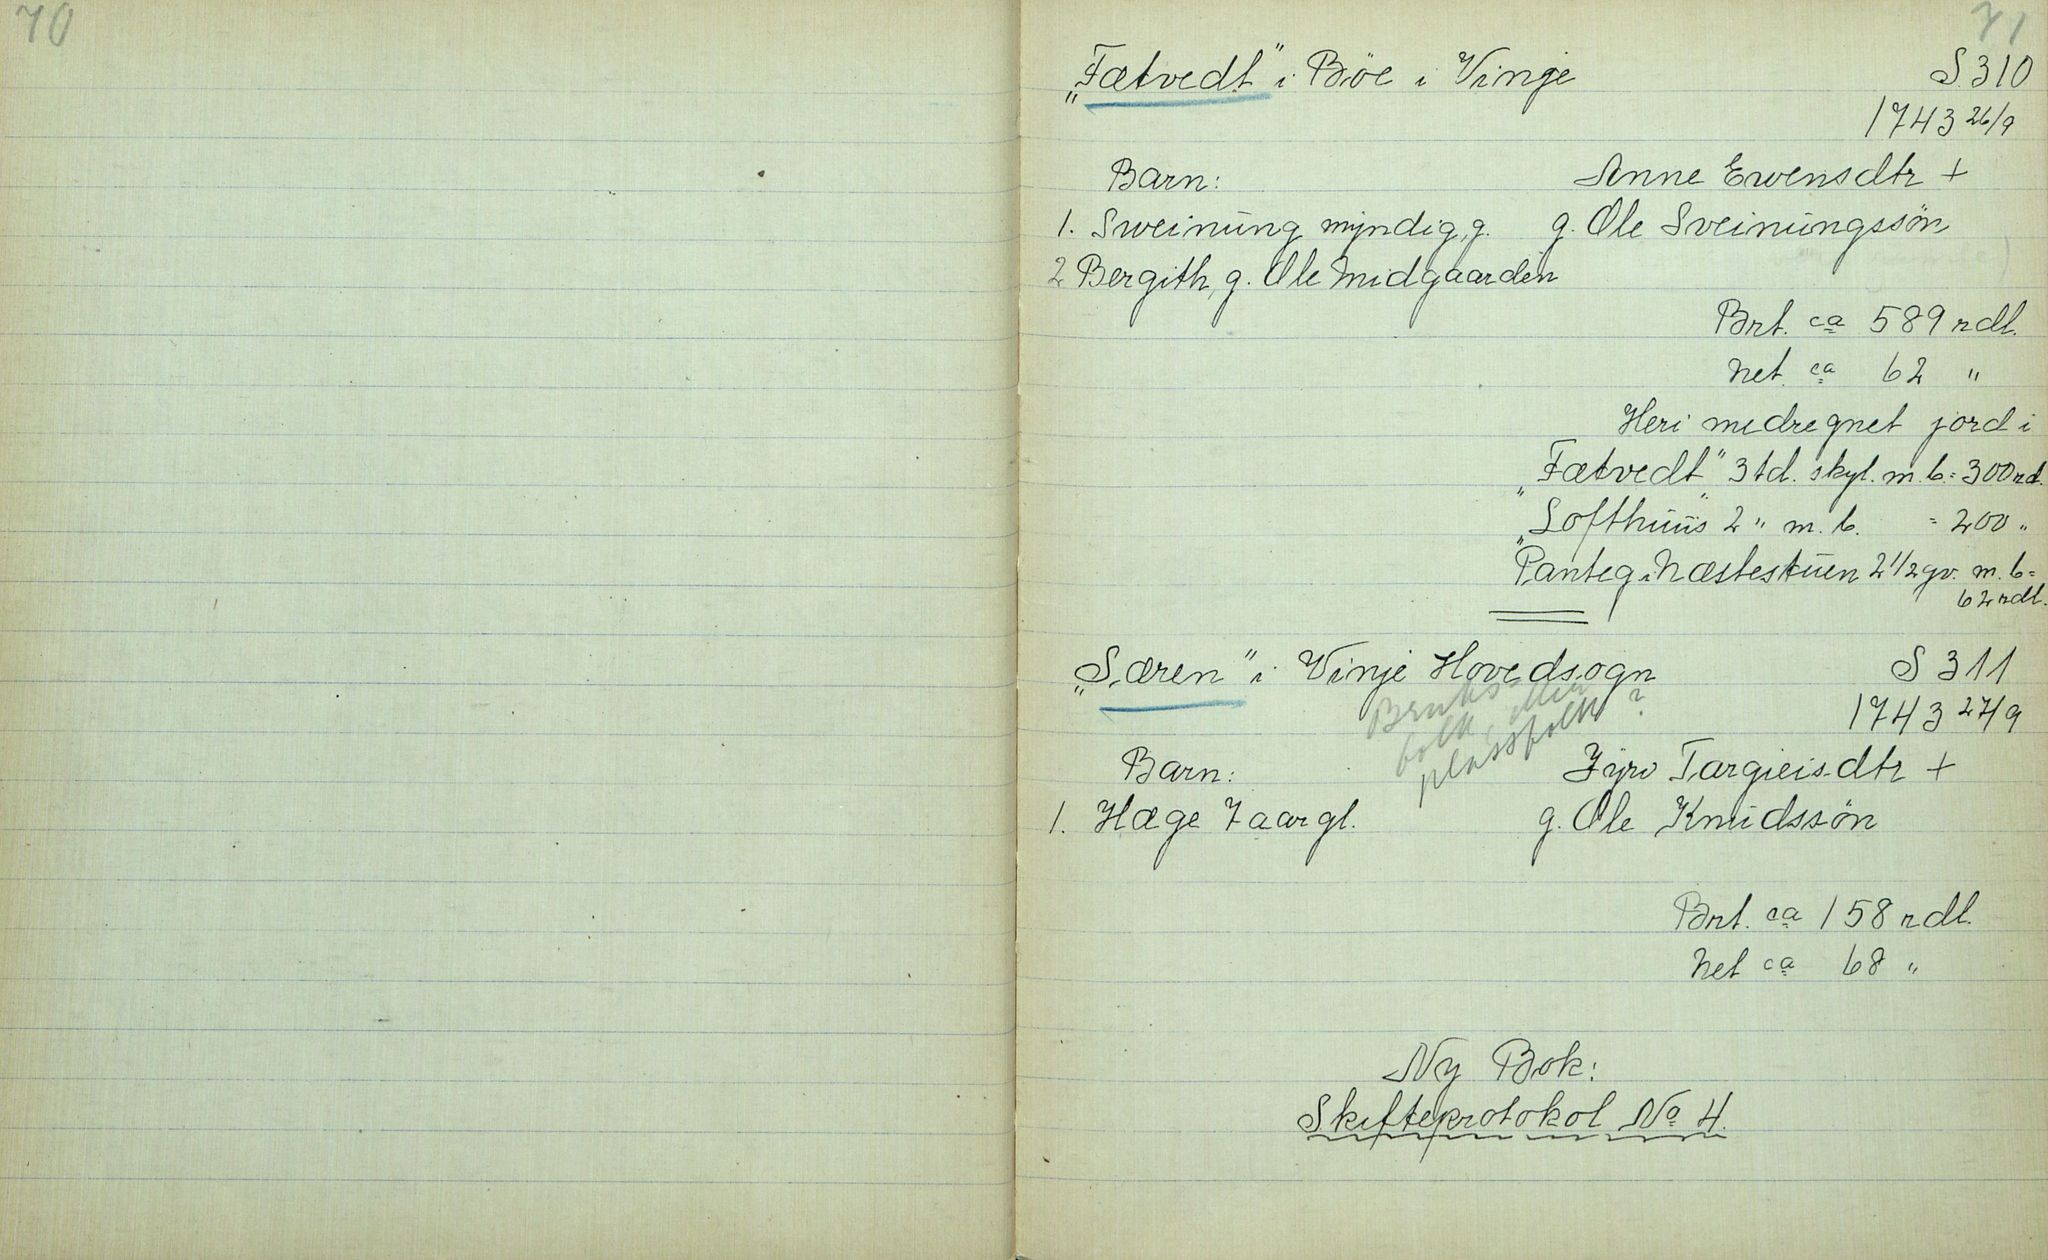 70
71
„Fætvedt" i Böe i Vinje S. 310
1743 26/9
Barn: Anne Ewensdtr +
1. Sweinung myndig, g. g. Ole Sveinungssön
2 Bergith, g. Ole Midgaarden
Brt. ca 589 rdl.
Net. ca 62 "
Heri medregnet jord i
„Fætvedt" 3 td. skyl. m. b. = 300 rd.
„Lofthuus" 2 " m. b. = 200 "
Panteg i Næstestuen 2 1/2 gv. m. b =
62 rdl.
„Særen" i Vinje Hovedsogn S 311
1743 27/9
Bruks-
folk, eller
plassfolk?
Barn: Jyro Targieisdtr +
1. Hæge 7 aar gl. g. Ole Knudssön
Brt. ca 158 rdl.
Net ca 68 "
Ny Bok:
Skifteprotokol No 4.